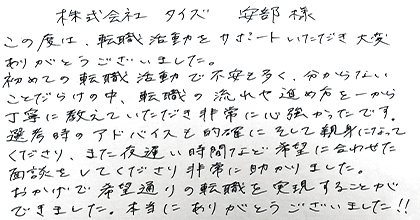 株式会社 タイズ 安部 様
この度は、転職活動をサポートいただき大変
ありがとうございました。
初めての転職活動で不安も多く、分からない
ことだらけの中、転職の流れや進め方を一から
丁寧に教えていただき非常に心強かったです。
選考時のアドバイスも的確に そして親身になって
くださり、また夜遅い時間など希望に合わせた
面談をしてくださり非常に助かりました。
おかげで希望通りの転職を実現することが
できました。本当にありがとうございました!!